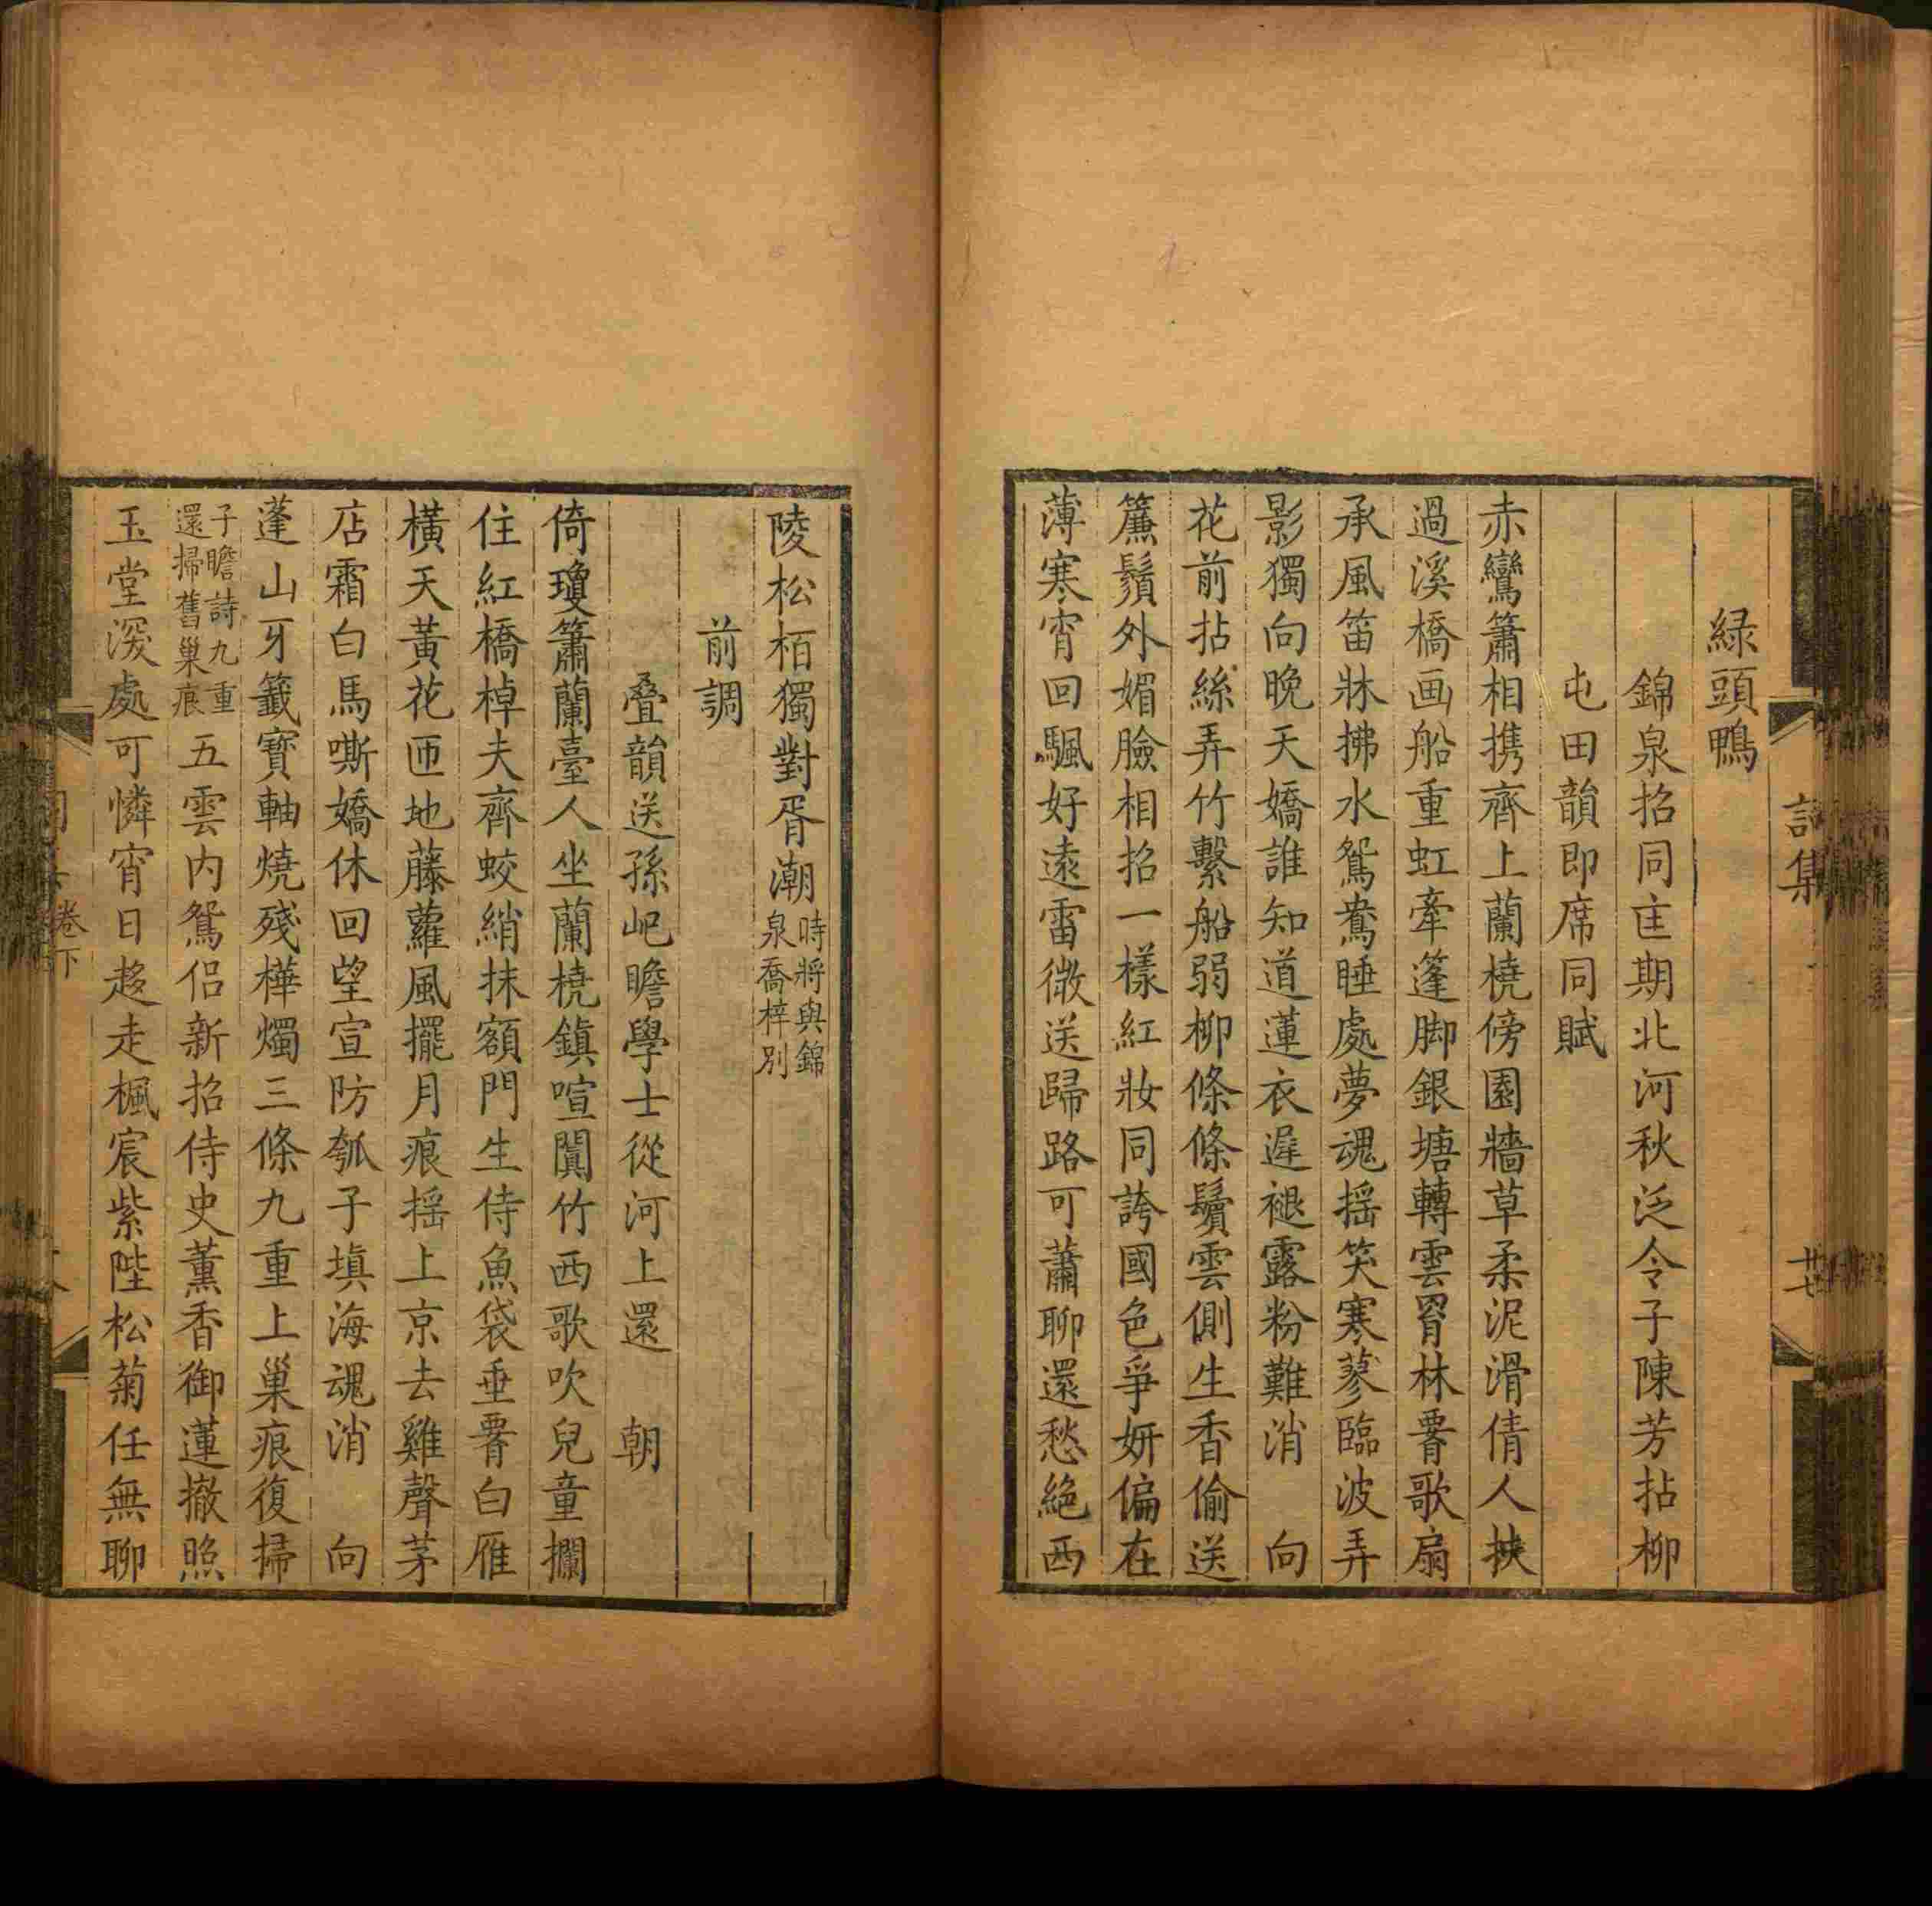 緑頭鴨
錦泉招同㕓期北河秋泛令子陳芳拈柳
屯田韻即席同賦
赤鸞簫相携齊上蘭橈傍園牆草柔泥滑倩人扶
過溪橋画船重虹牽篷脚銀塘轉雲罥林罯歌扇
承風笛牀拂水鴛鴦睡處夢魂摇笑寒蓼臨波弄
影獨向晚天嬌誰知道蓮衣遲褪露粉難消　向
花前拈絲弄竹繫船弱柳條條鬢雲側生香偷送
簾鬚外媚臉相招一樣紅妝同誇國色爭妍偏在
薄寒宵回颿好遠雷微送歸路可蕭聊還愁絶西
陵松栢獨對胥潮時將與錦
泉喬梓别
前調
叠韻送孫屺瞻學士從河上還　朝
倚瓊簫蘭臺人坐蘭橈鎮喧闐竹西歌吹兒童攔
住紅橋棹夫齊蛟綃抹額門生侍魚袋垂罯白雁
横天黄花匝地藤蘿風擺月痕摇上京去雞聲茅
店霜白馬嘶嬌休回望宣防瓠子填海魂消　向
蓬山牙籤寶軸燒殘樺燭三條九重上巢痕復掃
子瞻詩九重
還掃舊巢痕五雲内鴛侣新招侍史薰香御蓮撤照
玉堂深處可憐宵日趍走楓宸紫陛松菊任無聊
詞集
廿七
卷下